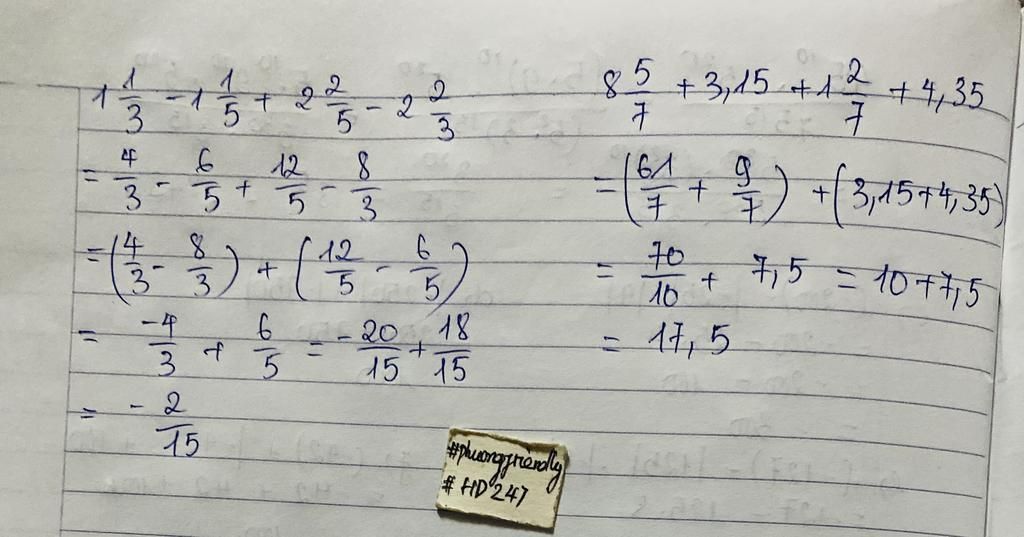 1 1/3 - 1 1/5 + 2 2/5 - 2 2/3
= 4/3 - 6/5 + 12/5 - 8/3
= (4/3 - 8/3) + (12/5 - 6/5)
= -4/3 + 6/5 = -20/15 + 18/15
= - 2/15
8 5/7 + 3,15 + 1 2/7 + 4,35
= (61/7 + 9/7) + (3,15 + 4,35)
= 70/10 + 7,5 = 10 + 7,5
= 17,5
#phuongfriendly
# HD 247